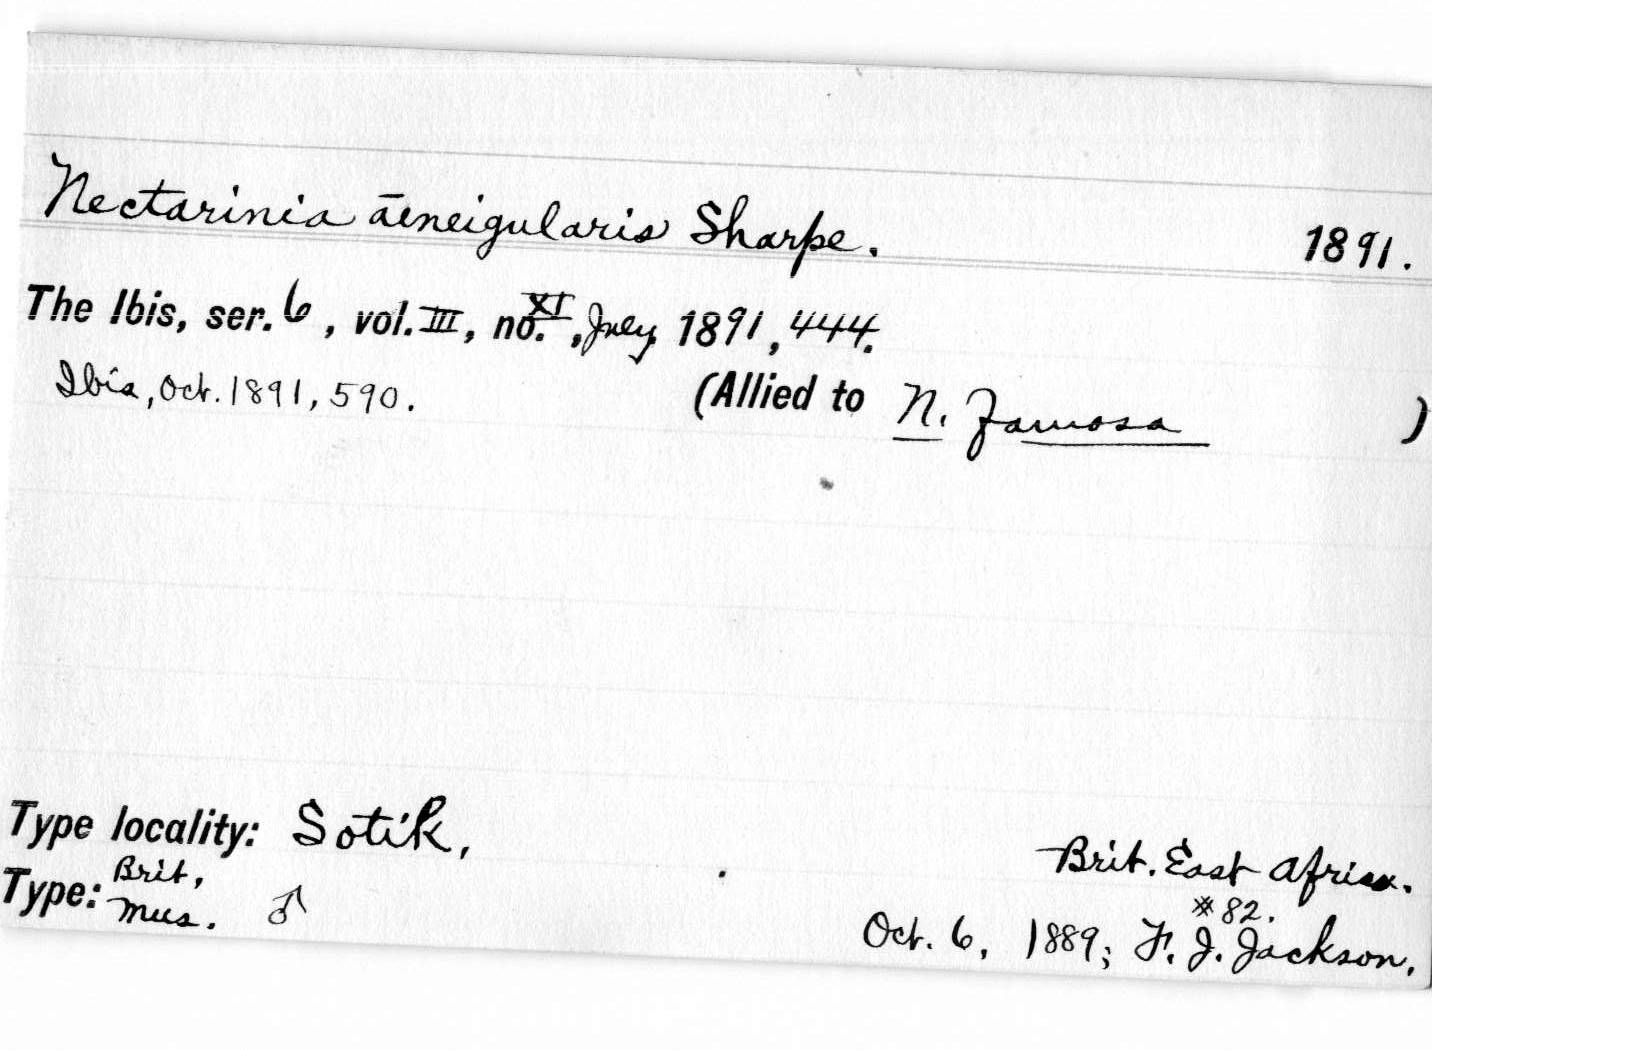 Nectarinia āeneigularis Sharpe. 1891.
The Ibis, ser. 6, vol. III, no. XI, July 1891, 444.
Ibis, Oct. 1891, 590. (Allied to N. famosa )
Type locality: Sotik, Brit. East Africa.
Type: Brit. Mus. ♂ #82.
Oct. 6, 1889; F. J. Jackson.